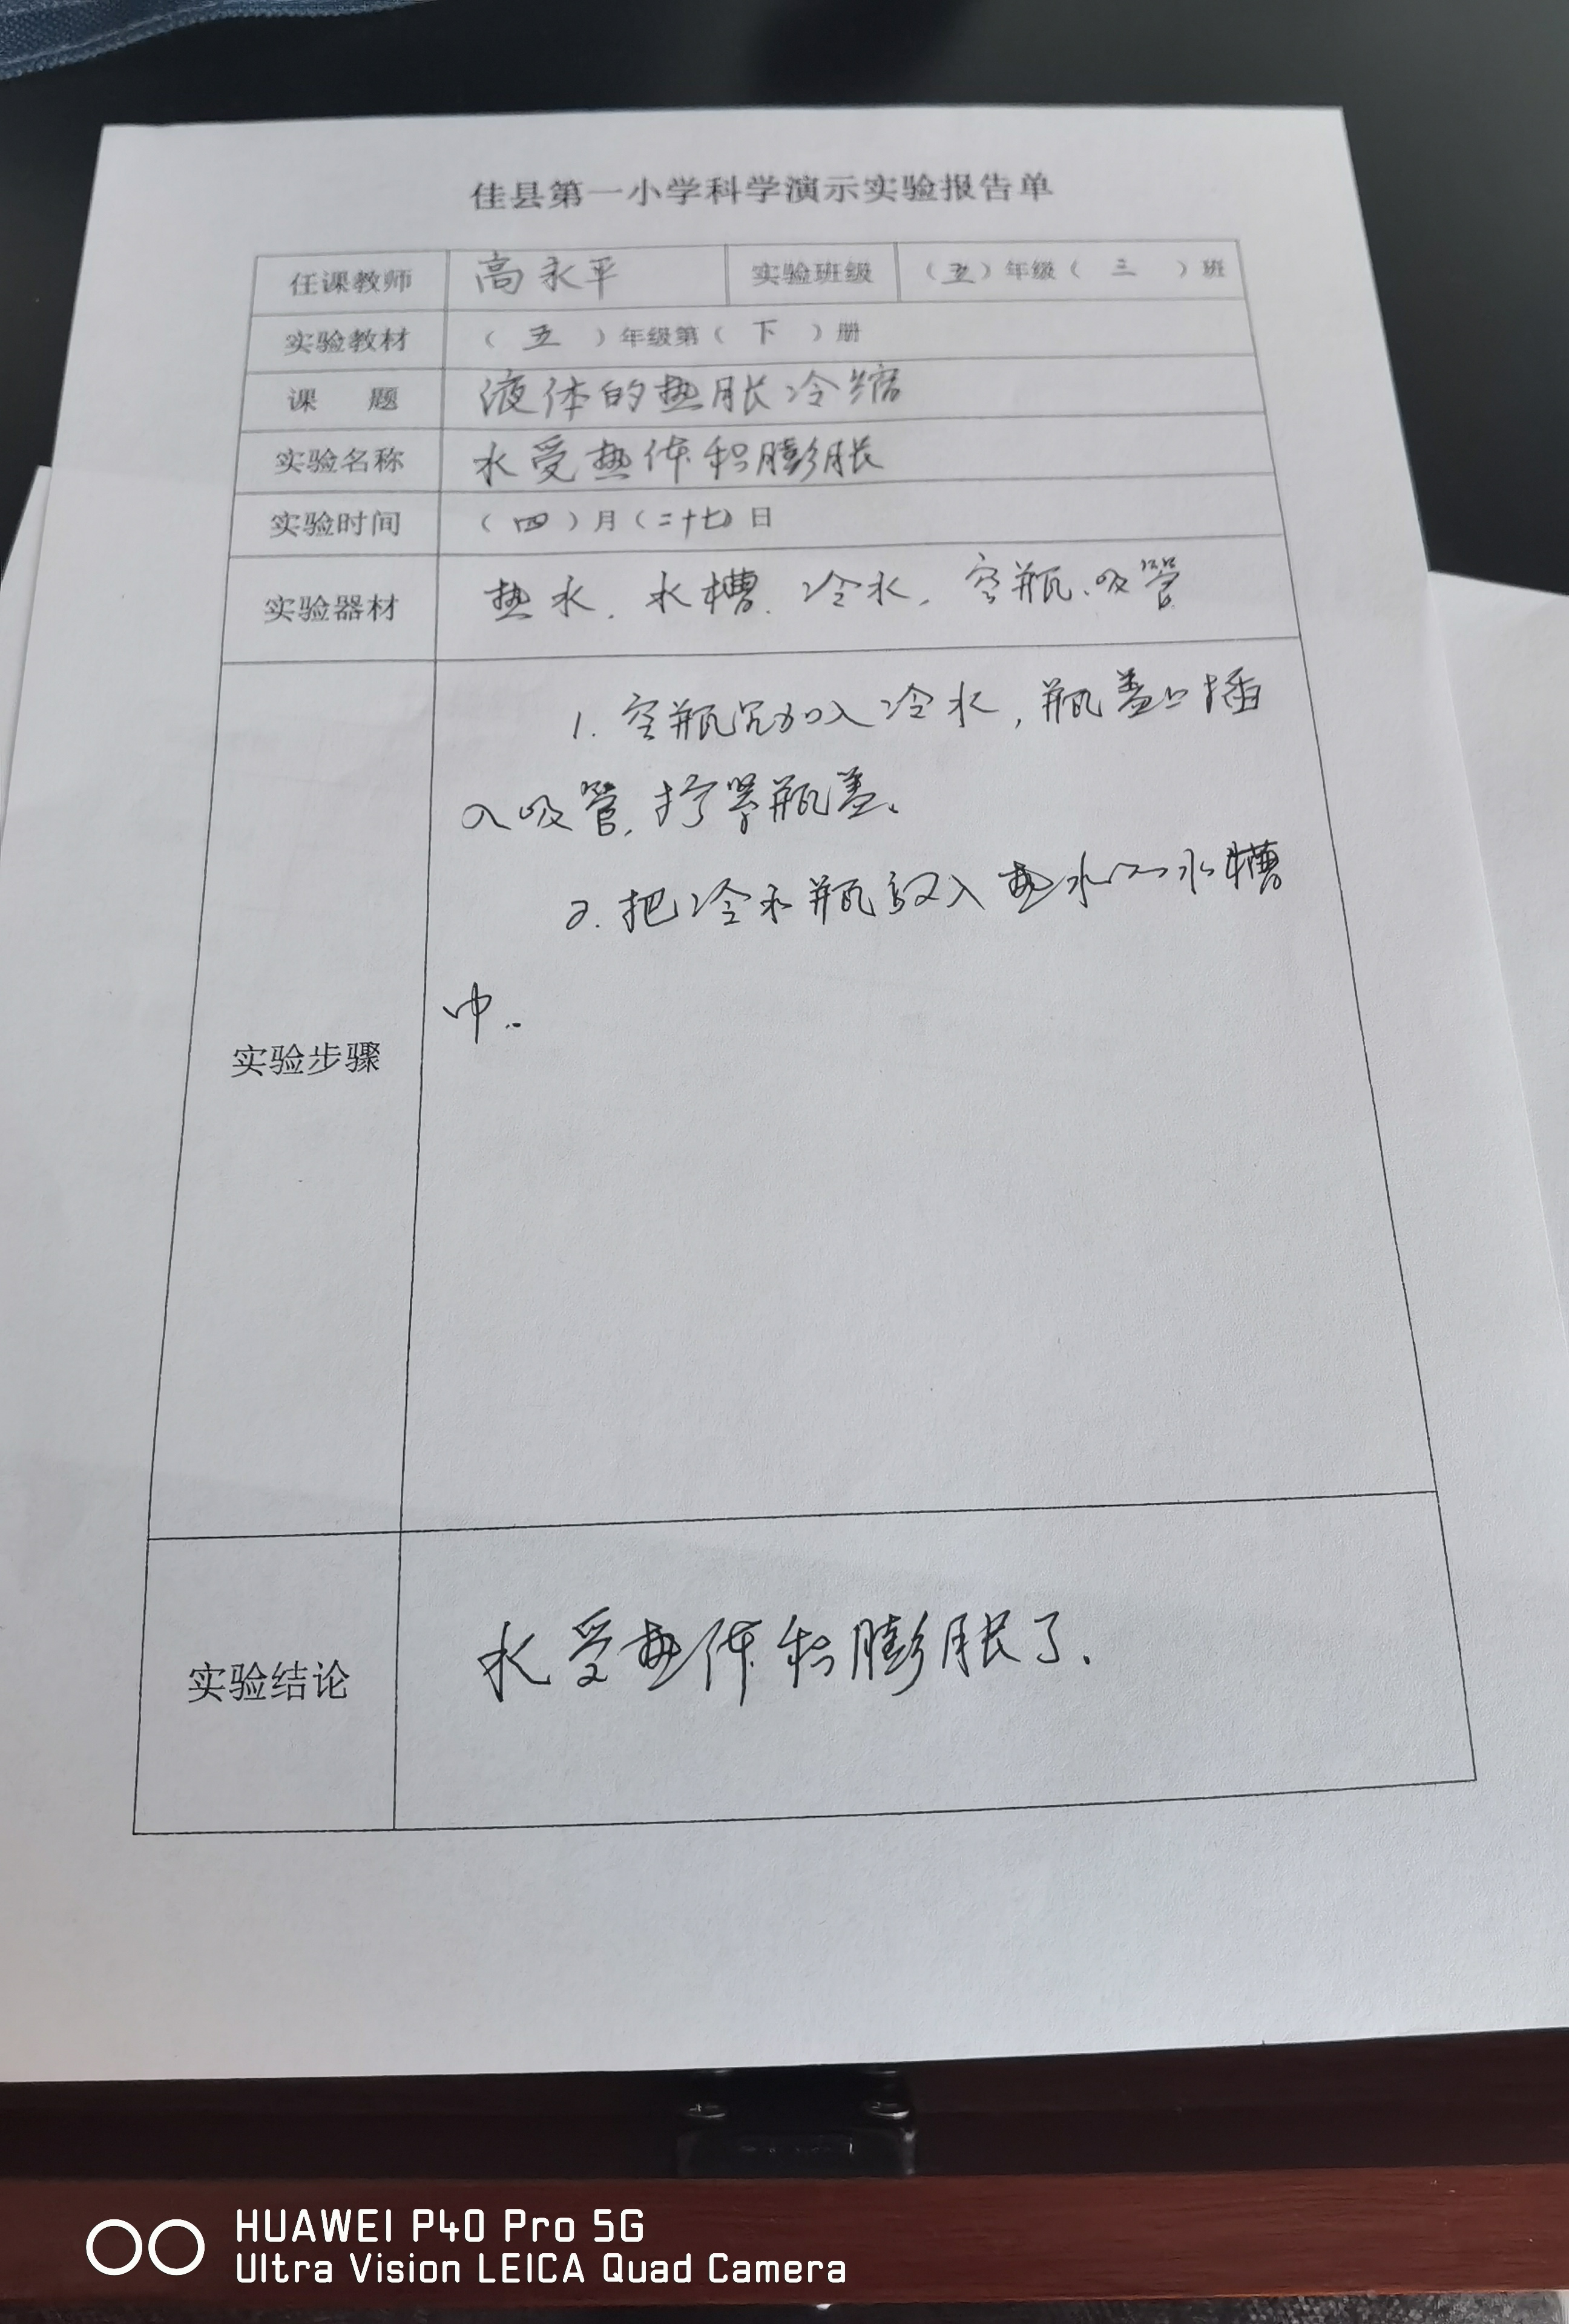 佳县第一小学科学演示实验报告单
任课教师 高永平 实验班级 （五）年级（三）班
实验教材 （五）年级第（下）册
课 题 液体的热胀冷缩
实验名称 水受热体积膨胀
实验时间 （四）月（二十七）日
实验器材 热水、水槽、冷水、空瓶、吸管
实验步骤
1. 空瓶里加入冷水，瓶盖上插
入吸管，拧紧瓶盖。
2. 把冷水瓶放入热水的水槽
中。
实验结论 水受热体积膨胀了.
HUAWEI P40 Pro 5G
Ultra Vision LEICA Quad Camera